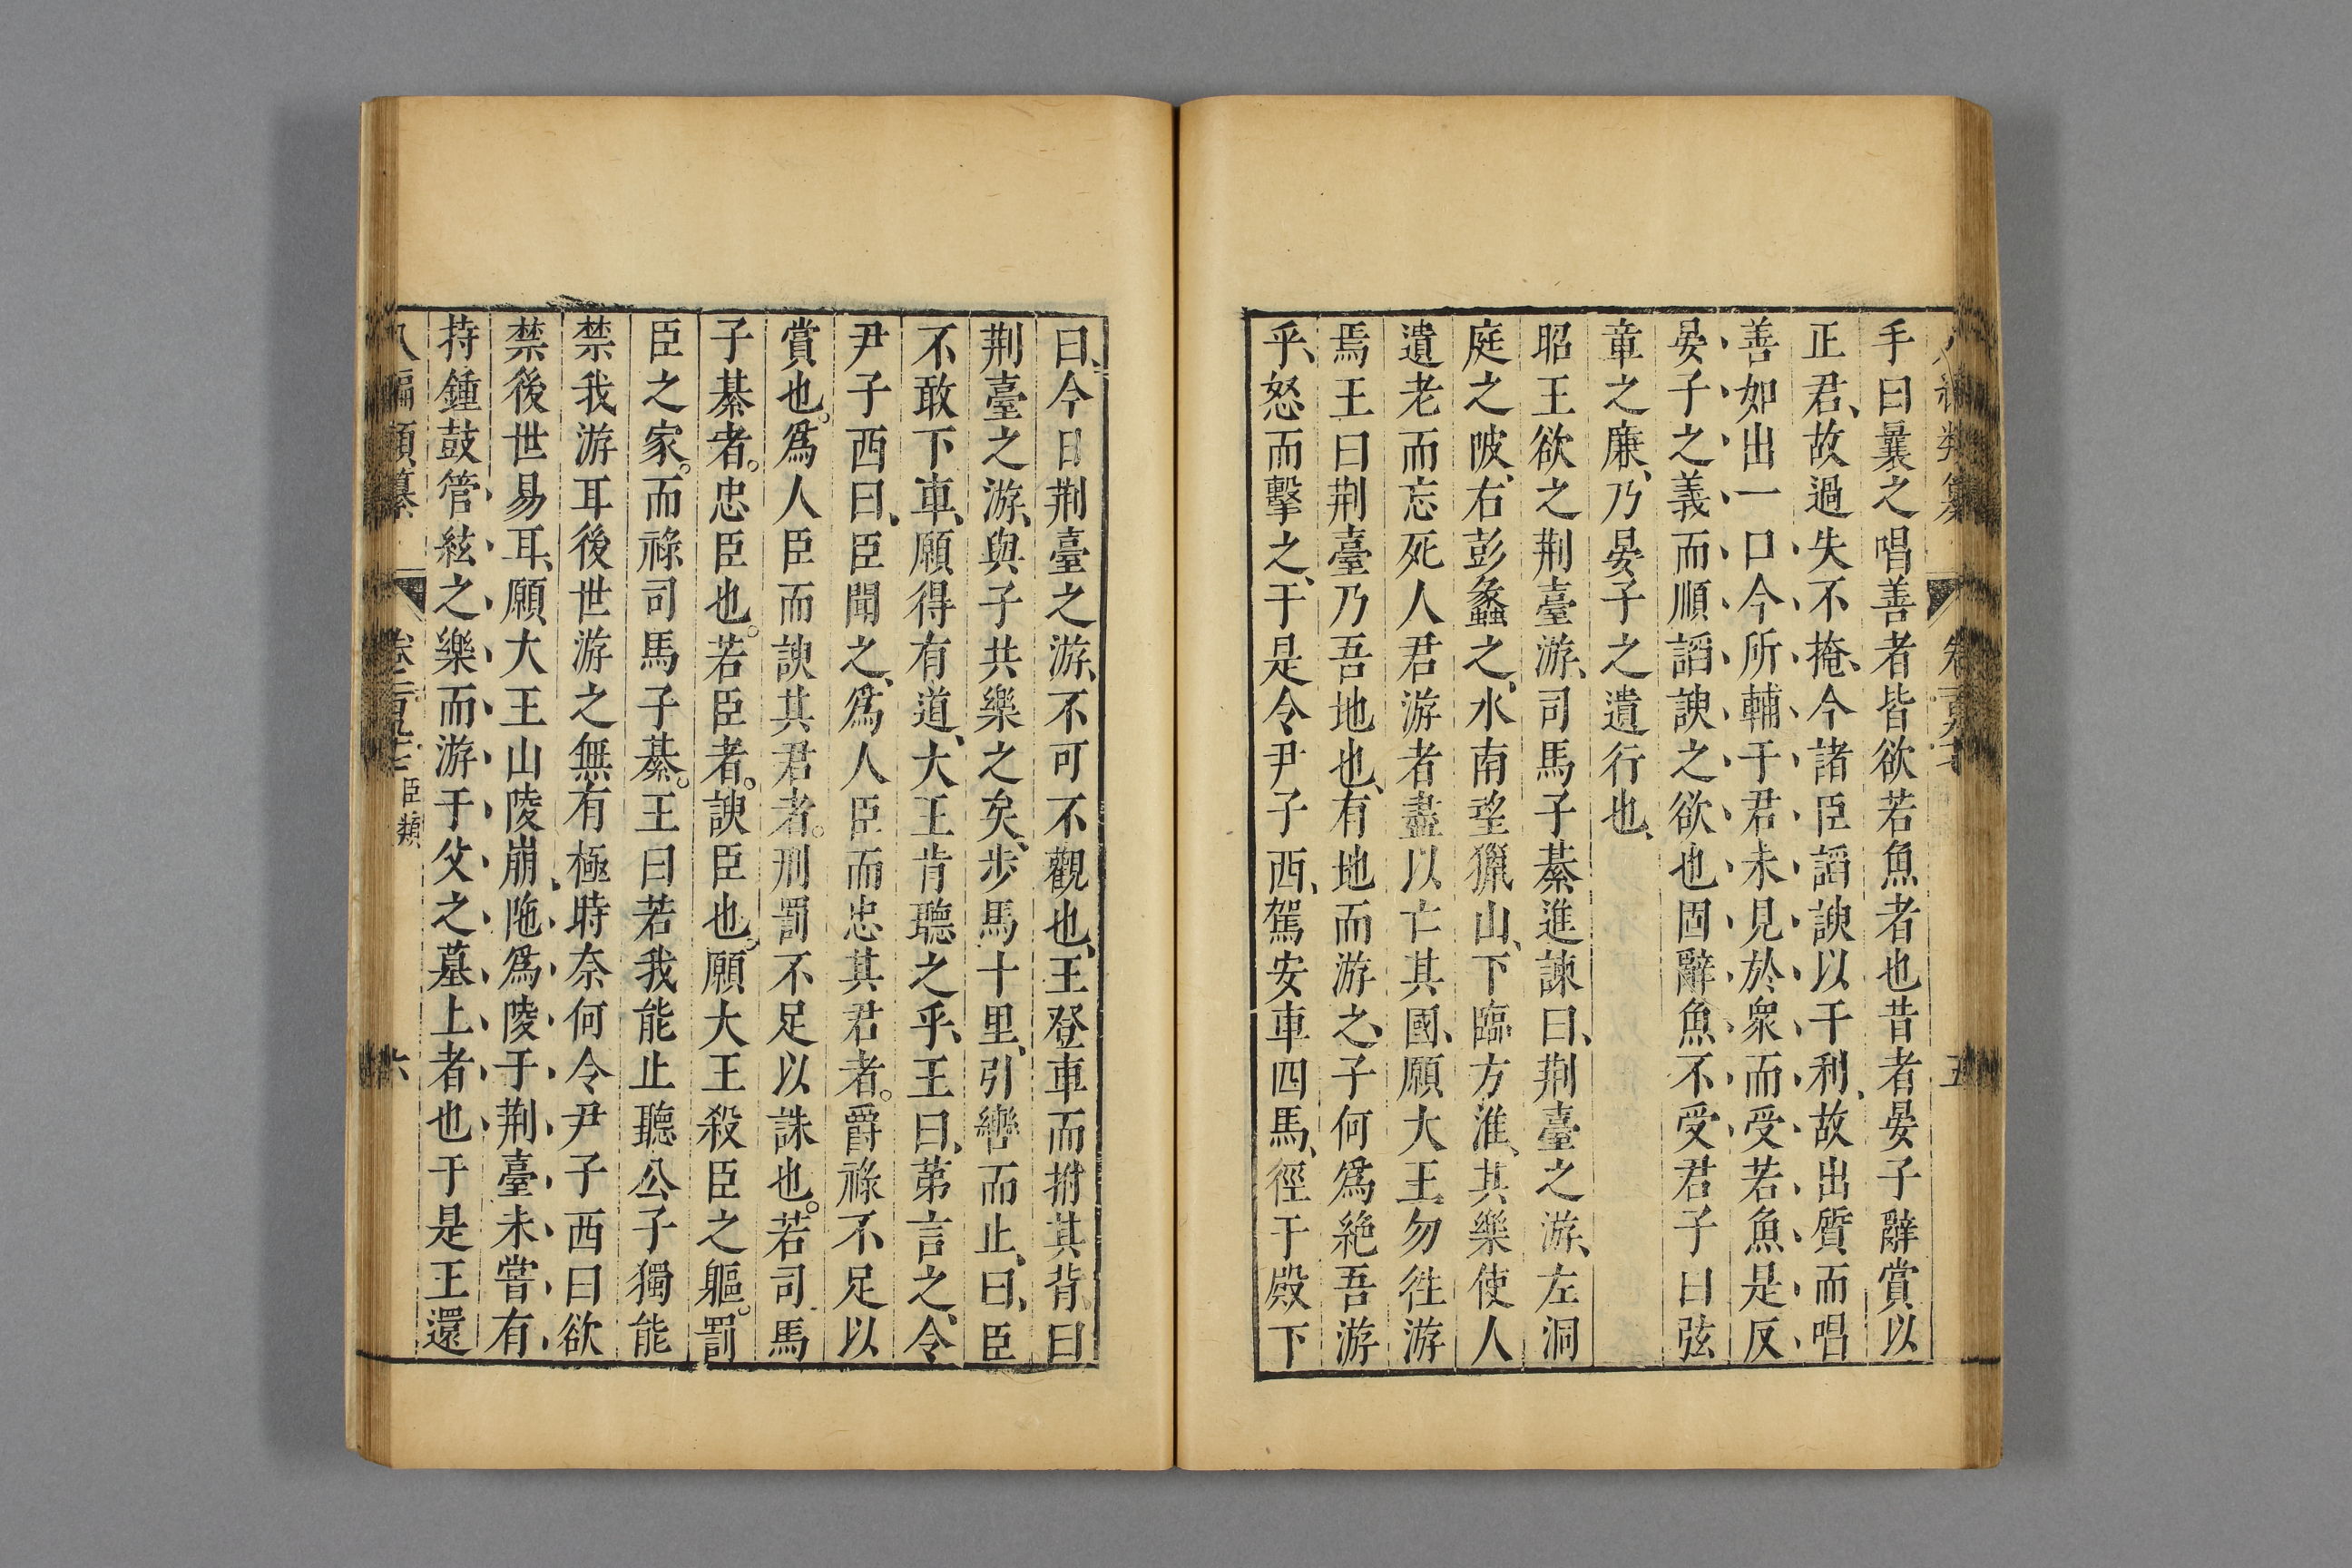 手曰曩之唱善者皆欲若魚者也昔者晏子辭賞以
正君、故過失不掩、今諸臣諂諛以干利、故出質而唱
善如出一口今所輔于君未見於衆而受若魚是反
晏子之義而順諂諛之欲也固辭魚不受君子曰弦
章之廉、乃晏子之遺行也、
昭王欲之荆臺游、司馬子綦進諫曰、荆臺之游、左洞
庭之陂、右彭蠡之、水南望獵山、下臨方淮、其樂使人
遺老而忘死人君游者盡以亡其國、願大王勿徃游
焉王曰荆臺乃吾地也、有地而游之、子何爲絶吾游
乎、怒而擊之、于是令尹子西、駕安車四馬、徑于殿下
曰、今日荆臺之游、不可不觀也、王登車而拊其背曰
荆臺之游、與子共樂之矣、步馬十里、引轡而止、曰、臣
不敢下車、願得有道、大王肯聽之乎、王曰、苐言之、令
尹子西曰、臣聞之、爲人臣而忠其君者。爵祿不足以
賞也。爲人臣而諛其君者。刑罰不足以誅也。若司馬
子綦者。忠臣也。若臣者。諛臣也。願大王殺臣之軀。罰
臣之家。而祿司馬子綦。王曰若我能止聽公子獨能
禁我游耳後世游之無有極時奈何令尹子西曰欲
禁後世易耳、願大王山陵崩陁爲陵于荆臺未嘗有
持鍾鼓管絃之樂而游于父之墓上者也于是王還
八編類纂 臣類 六